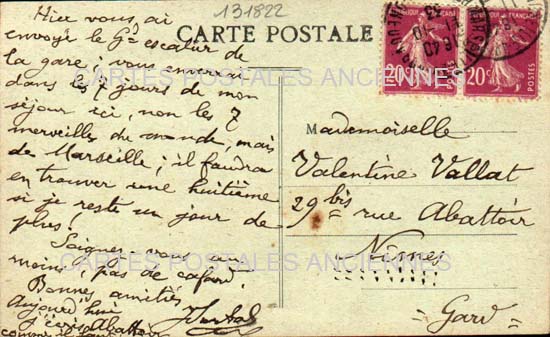 131822
CARTE POSTALE
Hier vous ai
envoyé le Gd escalier de
la gare ; vous enverrai
dans les 7 jours de mon
séjour ici, non les 7
merveilles du monde, mais
de Marseille ; il faudra
en trouver une huitième
si je reste un jour de
plus !
Soignez-vous au
moins, pas de cafard.
Bonnes amitiés
Aujourd'hui
j'écris Abattoir
comme il faut
Mademoiselle
Valentine Vallat
29 bis rue Abattoir
Nîmes
Gard
FRANÇAISE
POSTES
20c
FRANÇAISE
POSTES
20c
CARTES POSTALES ANCIENNES
CARTES POSTALES ANCIENNES